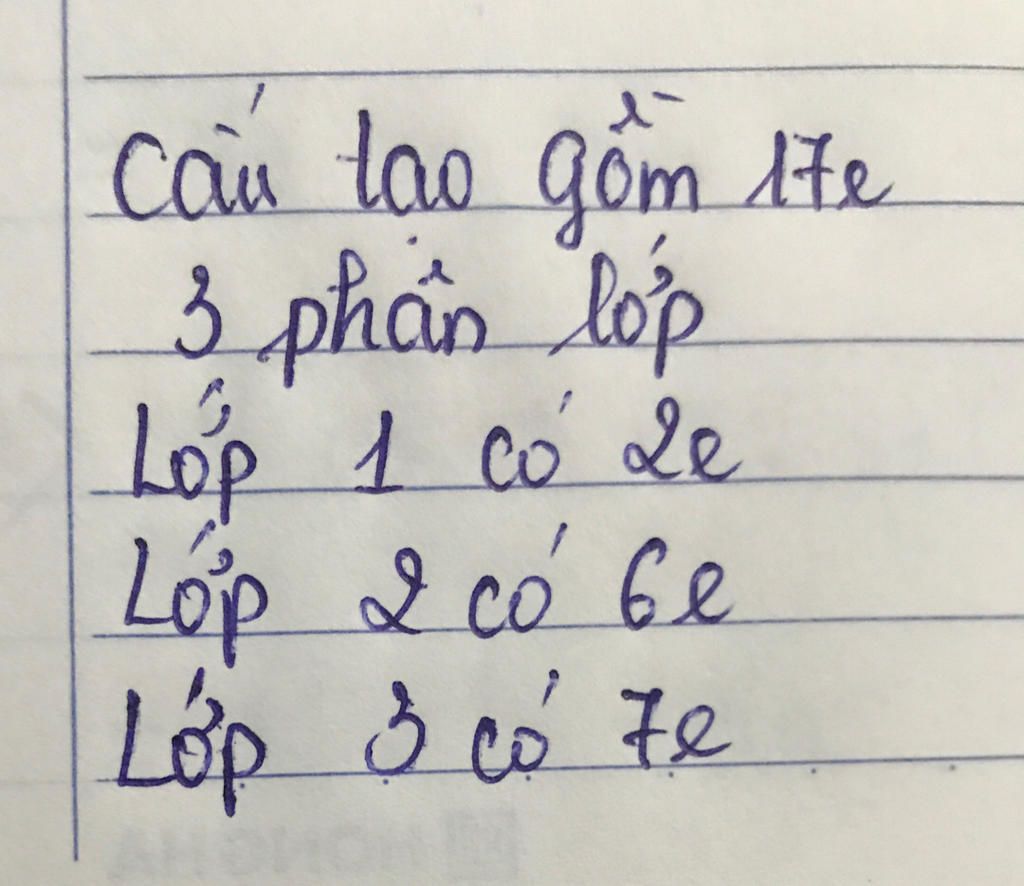 Cấu tạo gồm 17e
3 phân lớp
Lớp 1 có 2e
Lớp 2 có 6e
Lớp 3 có 7e